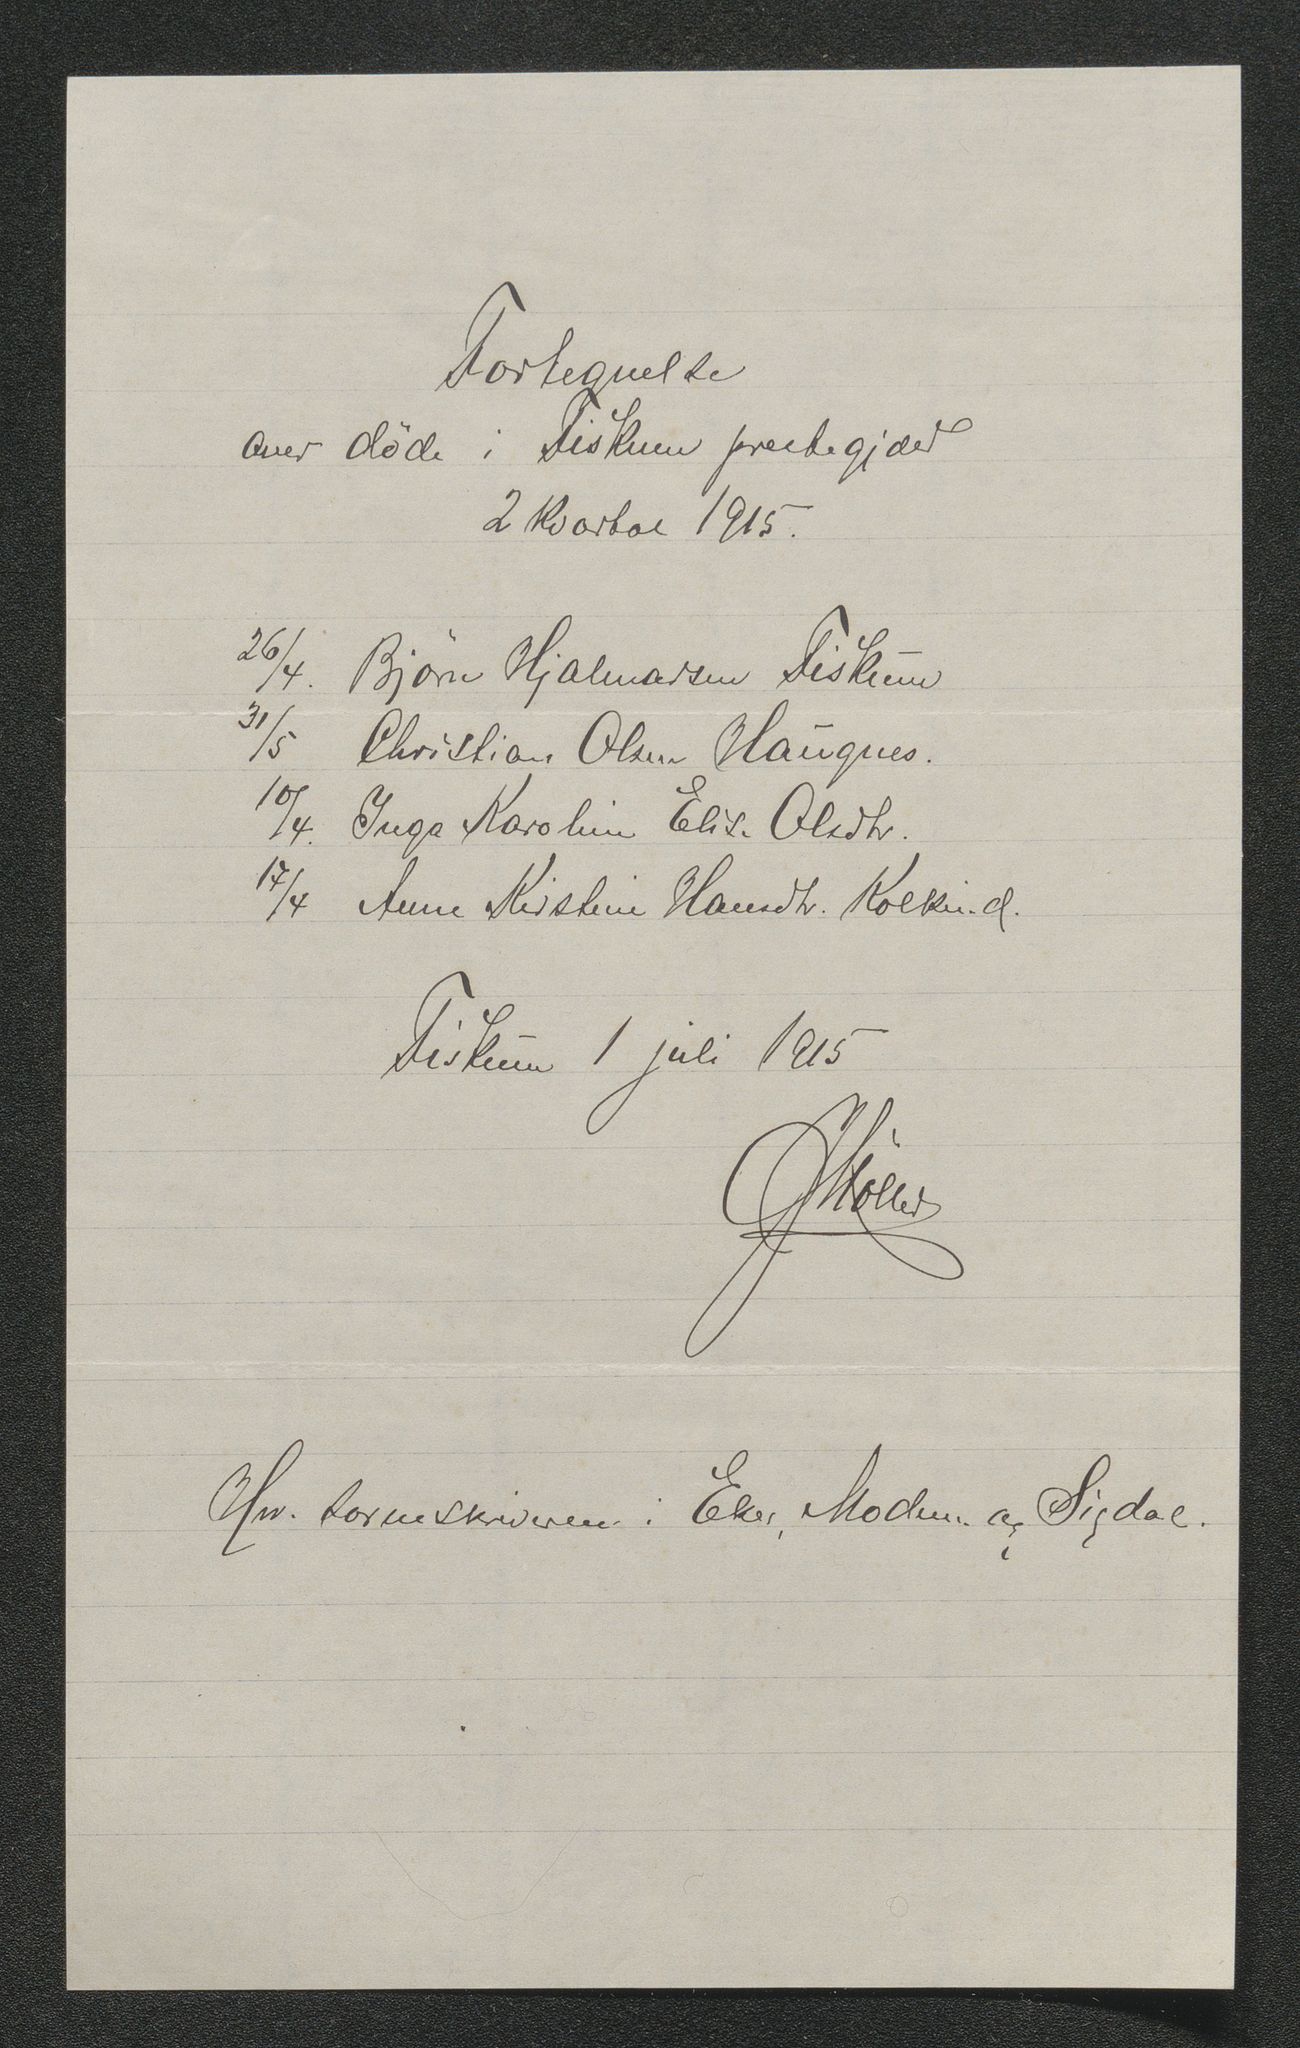 Fortegnelse
over döde i Fiskum prestegjeld
2 kvartal 1915.
26/4. Björn Hjalmarsen Fiskum
31/5 Christian Olsen Haugnes.
10/4. Inga Karolin Elis. Olsdtr.
17/4 Anne Kirstine Hansdtr. Kolkin.d.
Fiskum 1 juli 1915
Möller
Hr. sorenskriveren i Eker, Modum og Sigdal.